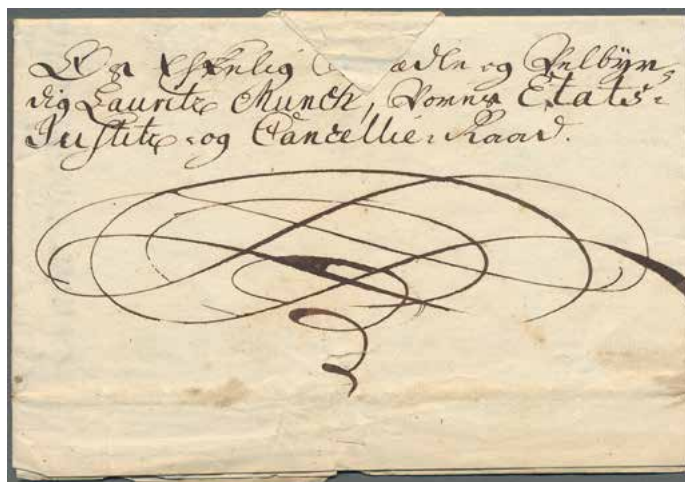 Os Elskelig ædle og Velbyr-
dig Lauritz Munch, Vores Etats-
Justitz-og Cancellie-Raad.